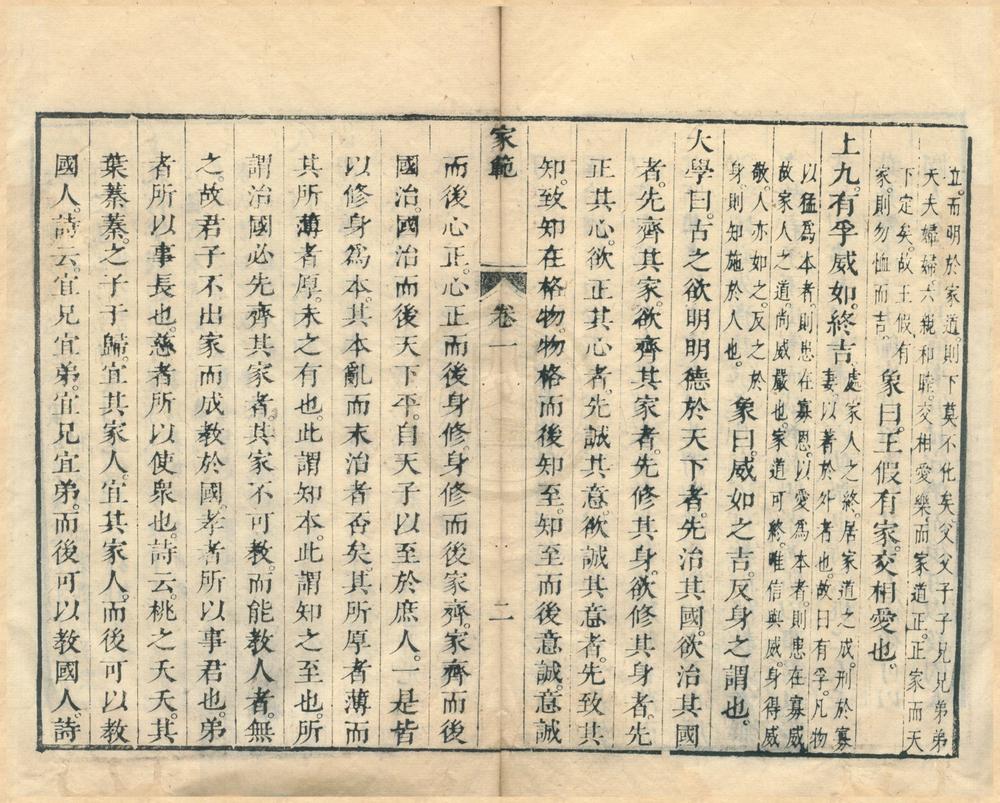 立。而明於家道。則下莫不化矣。父父子子兄兄弟弟
夫夫婦婦。六親和睦。交相愛樂。而家道正。正家而天
下定矣。故王假有
家。則勿恤而吉。
象曰。王假有家。交相愛也。
上九。有孚威如。終吉。
處家人之終。居家道之成。刑於寡
妻。以著於外者也。故曰有孚。凡物
以猛爲本者。則患在寡恩。以愛爲本者。則患在寡威。
故家人之道。尚威嚴也。家道可終。唯信與威。身得威
敬。人亦如之。反之於
身。則知施於人也。
象曰。威如之吉。反身之謂也。
大學曰。古之欲明明德於天下者。先治其國。欲治其國
者。先齊其家。欲齊其家者。先修其身。欲修其身者。先
正其心。欲正其心者。先誠其意。欲誠其意者。先致其
知。致知在格物。物格而後知至。知至而後意誠。意誠
家範
卷一
二
而後心正。心正而後身修。身修而後家齊。家齊而後
國治。國治而後天下平。自天子以至於庶人。一是皆
以修身爲本。其本亂而末治者否矣。其所厚者薄。而
其所薄者厚。未之有也。此謂知本。此謂知之至也。所
謂治國必先齊其家者。其家不可教。而能教人者。無
之。故君子不出家而成教於國。孝者所以事君也。弟
者所以事長也。慈者所以使衆也。詩云。桃之夭夭。其
葉蓁蓁。之子于歸。宜其家人。宜其家人。而後可以教
國人。詩云。宜兄宜弟。宜兄宜弟。而後可以教國人。詩